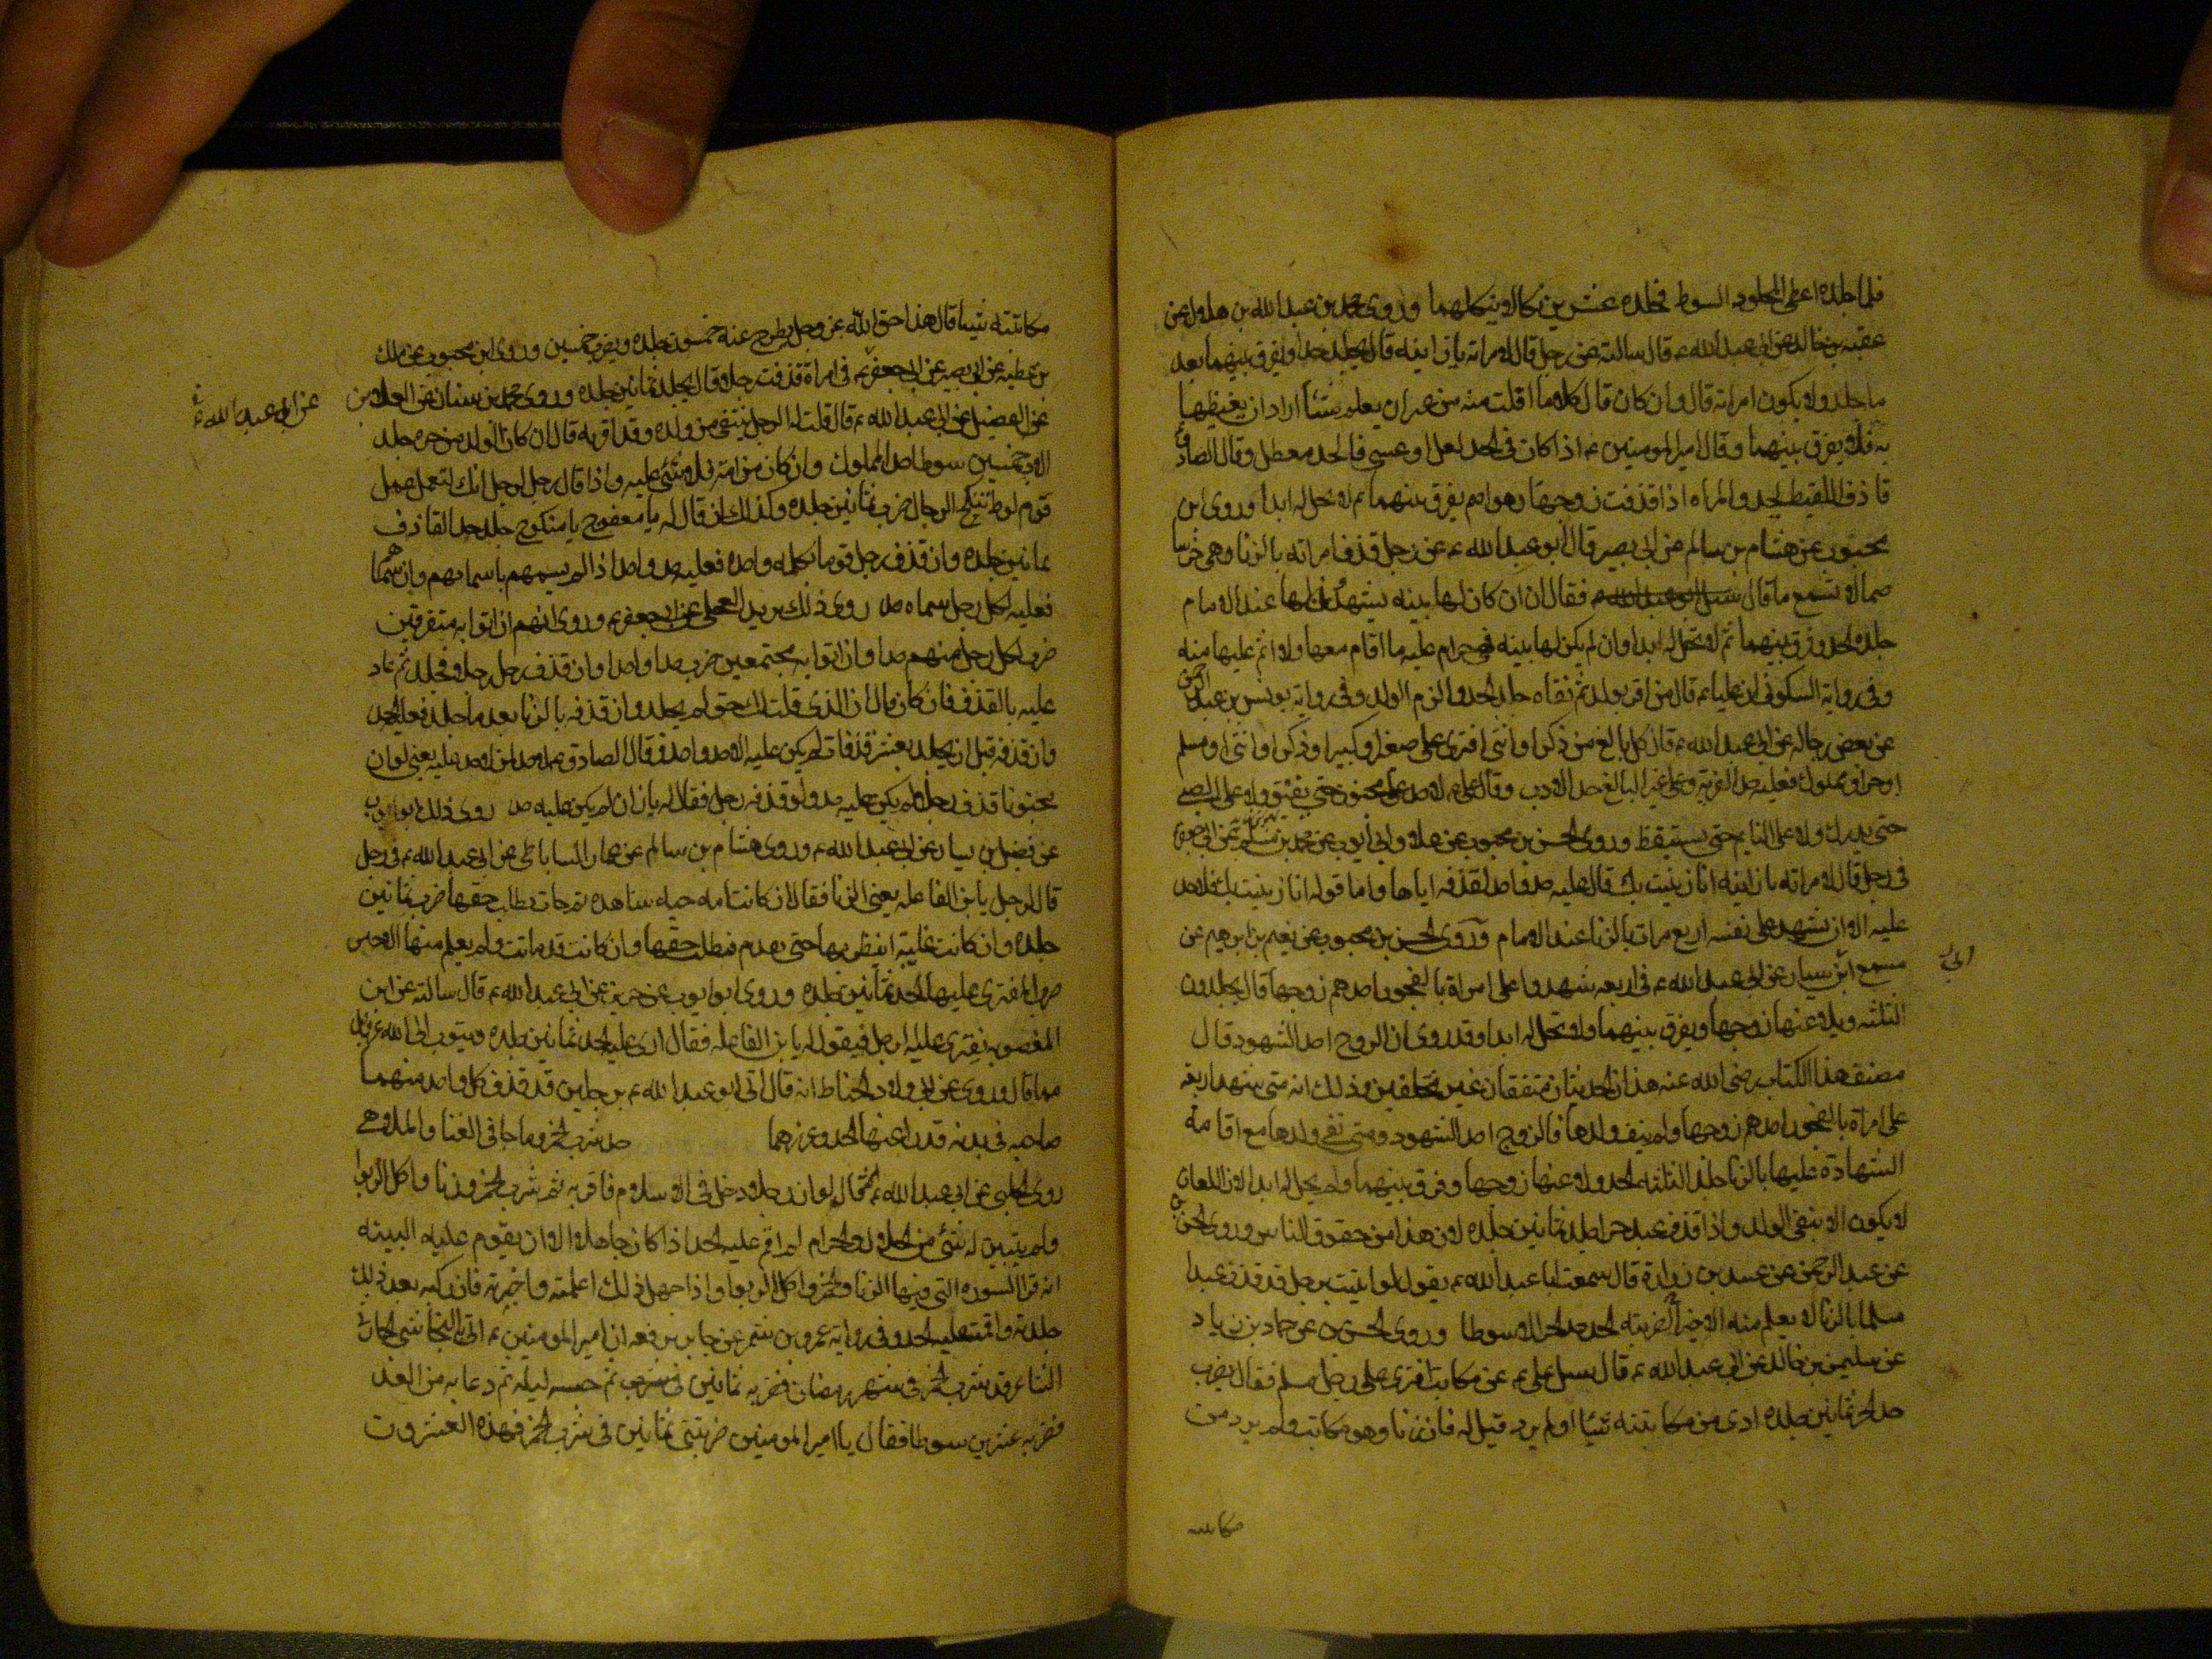 فلما جلده اعطى المجلود السوط فجلده عشرين نكالا ينكل بهما وروى محمد بن عبدالله بن هلال عن
عقبة بن خالد عن ابى عبدالله ع قال سالته عن رجل قال لامراته يا زانية قال يجلد حدا و يفرق بينهما بعد
ما جلد ولا يكون امراته قال وان كان قال كلاما اقلت منه من غير ان يعلم شيئا اراد ان يغيظها
به فلا يفرق بينهما وقال امير المومنين ع اذا كان فى الحد لعل او عسى فالحد معطل وقال الصادق
قاذف اللقيط يحد والمراه اذا قذفت زوجها وهو اصم يفرق بينهما ثم لا تحل له ابدا وروى ابن
محبوب عن هشام بن سالم عن ابى بصير قال ابو عبدالله ع عن رجل قذف امراته بالزنا وهى خرسا
صما لا تسمع ما قال فقال ان كان لها بينه يشهد لها عند الامام
جلده الحد وفرق بينهما ثم لا تحل له ابدا وان لم يكن لها بينه فهى حرام عليه ما اقام معها ولا اثم عليها منه
وفى رواية السكونى ان عليا ع قال من اقر بولد ثم نفاه جلد الحد والزم الولد وفى رواية يونس بن عبد الرحمن
عن بعض رجاله عن ابى عبدالله ع قال كل بالغ من ذكر او انثى افترى على صغير او كبير او ذكر او انثى او مسلم
او حر او مملوك فعليه حد الفرية وعلى غير البالغ حد الادب وقال على ع لا حد على مجنون حتى يفيق ولا على الصبى
حتى يدرك ولا على النايم حتى يستيقظ وروى الحسن بن محبوب عن علا و ابى ايوب عن محمد بن مسلم عن ابى جعفر
فى رجل قال لامراته يا زانيه انا زنيت بك قال عليه حد واحد لقذفه اياها واما قوله انا زنيت بك فلا حد
عليه الا ان يشهد على نفسه اربع مرات بالزنا عند الامام وروى الحسن بن محبوب عن نعيم بن ابرهيم عن
مسمع ابى سيار عن ابى عبدالله ع فى اربعه شهدوا على امراة بالفجور احدهم زوجها قال يجلدون
الثلثه ويلاعنها زوجها ويفرق بينهما ولا تحل له ابدا وقد روى ان الزوج احد الشهود قال
مصنف هذا الكتاب رضى الله عنه هذان الحديثان متفقان غير مختلفين وذلك انه متى شهد اربعة
على امراة بالفجور احدهم زوجها ولم ينف ولدها فالزوج احد الشهود ومتى نفى ولدها مع اقامة
الشهادة عليها بالزنا جلد الثلثه الحد ولاعنها زوجها وفرق بينهما ولم يحل له ابدا لان اللعان
لا يكون الا بنفى الولد واذا قذف عبد حرا جلد ثمانين جلده لان هذا من حقوق الناس وروى الحسن
عن عبد الرحمن عن عبيد بن زرارة قال سمعت ابا عبدالله ع يقول لو اتيت برجل قد قذف عبدا
مسلما بالزنا لا يعلم منه الا خيرا لضربته الحد حد الحر الا سوطا وروى الحسن عن حماد بن زياد
عن سليمن بن خالد عن ابى عبدالله ع قال سيل على ع عن مكاتب افترى على رجل مسلم فقال يضرب
حد الحر ثمانين جلده ادى من مكاتبته شيئا او لم يرد قيل له فان زنا وهو مكاتب ولم يرد من
مكاتبته
مكاتبته شيئا قال هذا حق الله عز وجل يطرح عنه خمسون جلده ويضرب خمسين وروى ابن محبوب عن ملك
بن عطيه عن ابى بصير عن ابى جعفر ع فى امراة قذفت رجلا قال يجلد ثمانين جلده وروى محمد بن سنان عن العلا بن
عن ابى عبدالله ع
عن الفضيل عن ابى عبدالله ع قال قلت له الرجل ينتفى من ولده وقد اقر به قال ان كان الولد من حره جلد
الاب خمسين سوطا حد المملوك وان كان من امة فلا شئ عليه واذا قال رجل لرجل انك لتعمل عمل
قوم لوط تنكح الرجال ضرب ثمانين جلده وكذلك ان قال له يا معفوج يا منكوح جلد حد القاذف
ثمانين جلده وان قذف رجل قوما بكلمه واحده فعليه حد واحد اذا لم يسمهم باسمايهم وان سماهم
فعليه لكل رجل سماه حد روى ذلك بريد العجلى عن ابى جعفر ع وروى انهم ان اتوا به متفرقين
ضرب لكل رجل منهم حدا وان اتوا به مجتمعين ضرب حدا واحدا وان قذف رجل رجلا فجلد ثم عاد
عليه بالقذف فان كان قال ان الذى قلت لك حق لم يجلد وان قذفه بالزنا بعد ما جلد فعليه الحد
وان قذفه قبل ان يجلد بعشر قذفات لم يكن عليه الا حد واحد وقال الصادق ع لا حد لمن لا حد عليه يعنى لو ان
مجنونا قذف رجلا لم يكن عليه حد ولو قذفه رجل فقال له يا زان لم يكن عليه حد روى ذلك ابو ايوب
عن فضيل بن يسار عن ابى عبدالله ع وروى هشام بن سالم عن عمار الساباطى عن ابى عبدالله ع فى رجل
قال لرجل يا بن الفاعله يعنى الزنا فقال ان كانت امه حيه شاهده ثم جات تطلب حقها ضرب ثمانين
جلده وان كانت غايبة انتظر بها حتى تقدم فتطلب حقها وان كانت قد ماتت ولم يعلم منها الا خير
ضرب المفترى عليها الحد ثمانين جلده وروى ابو ايوب عن حريز عن ابى عبدالله ع قال سالته عن ابن
المغصوبة يفترى عليه الرجل فيقول له يا بن الفاعله فقال ارى عليه الحد ثمانين جلده ويتوب الى الله عز وجل
مما قال وروى عن ابى ولاد الحناط انه قال اتى ابو عبدالله ع برجلين قد قذف كل واحد منهما
صاحبه فى بدنه قدرا عنهما الحد وعزرهما حد شرب الخمر وما جا فى الغنا والملاهى
روى الحلبى عن ابى عبدالله ع انه قال لو ان رجلا دخل فى الاسلام فاقر به ثم شرب الخمر وزنا واكل الربوا
ولم يتبين له شئ من الحلال والحرام لم اقم عليه الحد اذا كان جاهلا الا ان يقوم عليه البينه
انه قرا السوره التى فيها الزنا والخمر واكل الربوا واذا جهل ذلك اعلمته واخبرته فان ركبه بعد ذلك
جلدته واقمت عليه الحد وفى رواية عمرو بن شمر عن جابر يرفعه ان امير المومنين ع اتى بالنجاشى الحارثى
الشاعر وقد شرب الخمر فى شهر رمضان فضربه ثمانين ثم حبسه ليله ثم دعا به من الغد
فضربه عشرين سوطا فقال يا امير المومنين ضربتنى ثمانين فى شرب الخمر فهذه العشرون